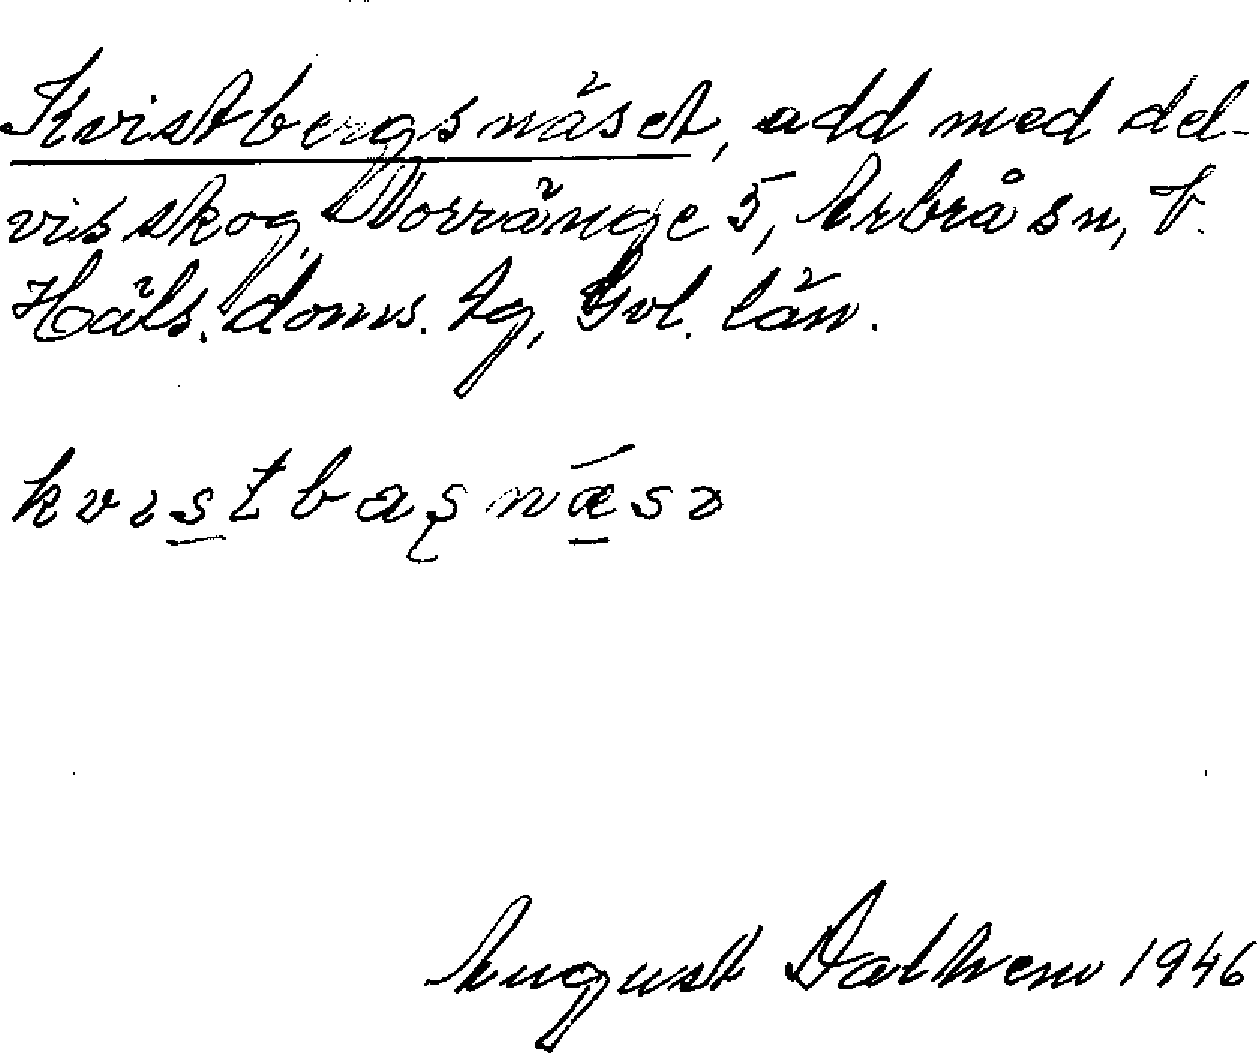 Kvistbergsnäset, udd med del-
vis skog, Norränge 5, Arbrå sn, V.
Häls. doms. tg, Gvl. län.
kvɪstbaȿnæsə
August Dathem 1946